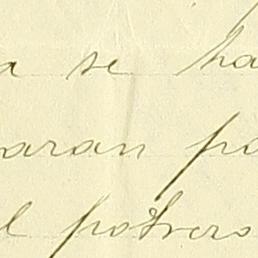 a se ha
aran pa
l potrero